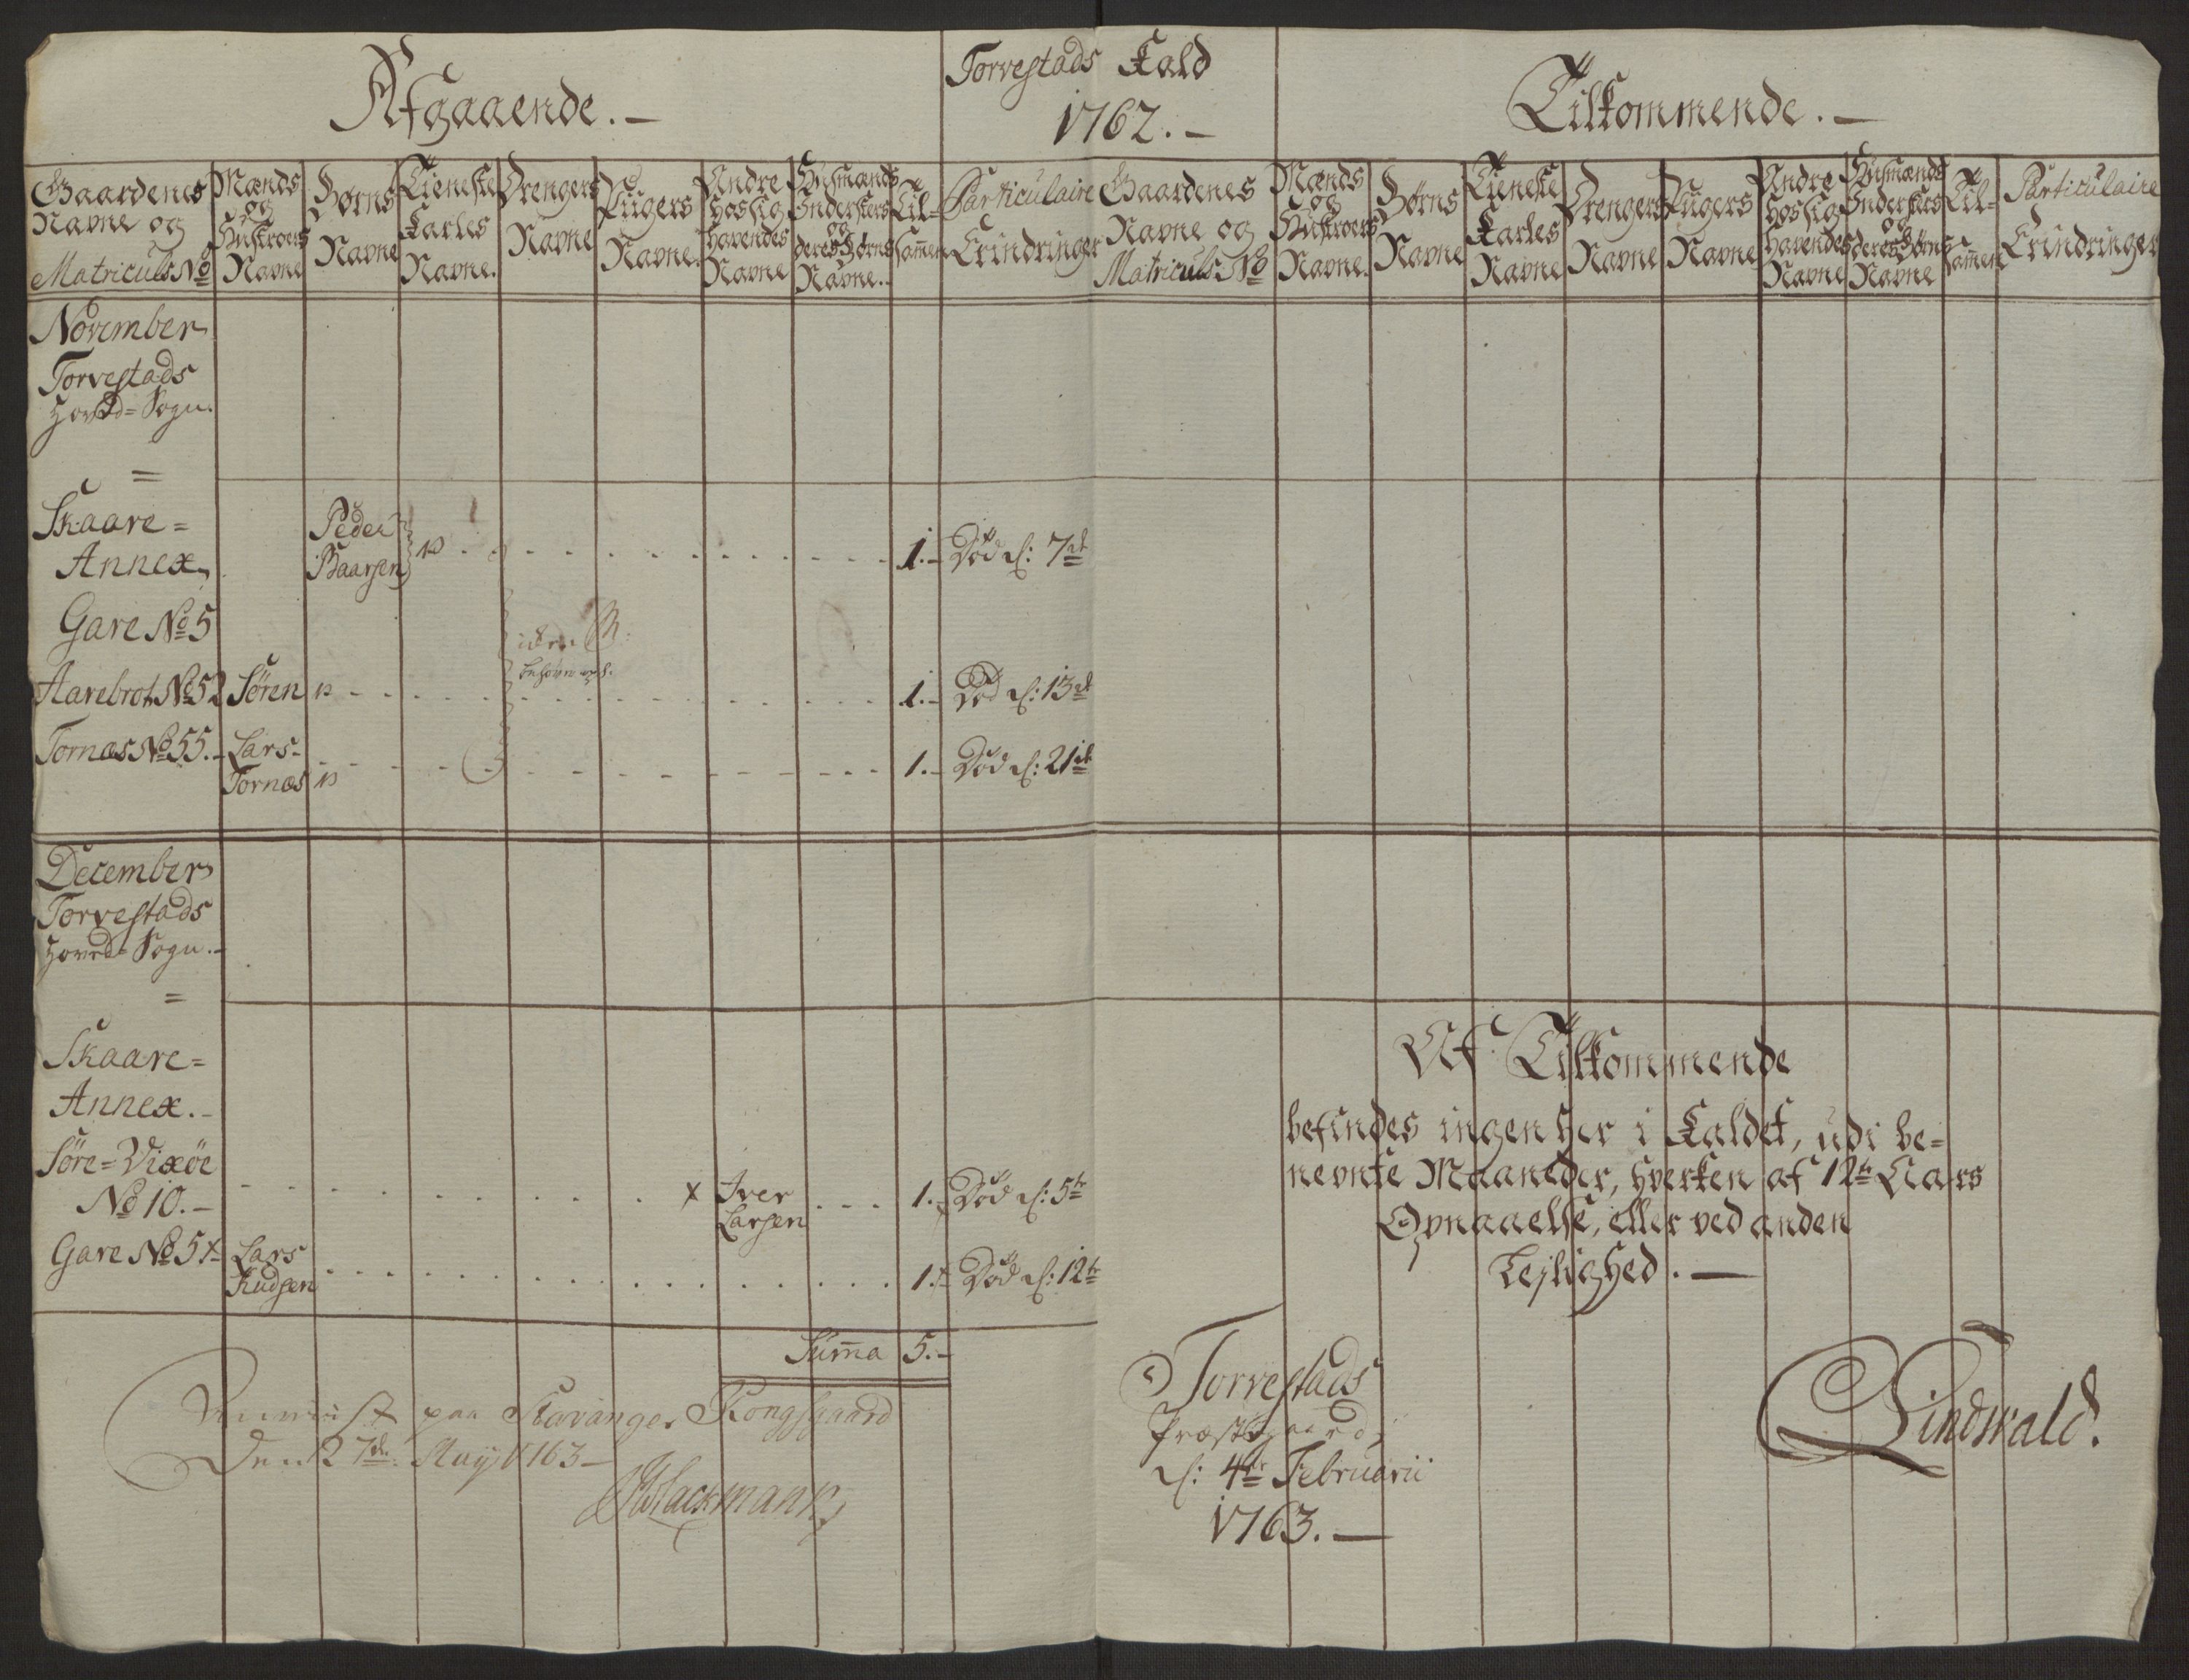 Afgaaende.-
Torvestads Kald
1762.-
Tilkommende.-
Gaardenes Navne og Matriculs No
Mænds og Hustroers Navne
Børns Navne
Tieneste Karles Navne.
Drengers Navne
Pigers Navne.
Andre hos sig havendes Navne
Husmænds Inderster og deres Børns Navne.
Til=sammen
Particulaire Erindringer
Gaardenes Navne og Matriculs No
Mænds og Hustroers Navne.
Børns Navne
Tieneste Karles Navne
Drengers Navne
Pigers Navne
Andre hos sig havendes Navne
Husmænds Inderster og deres Børns Navne
Til=sammen
Particulaire Erindringer
November
Torvestads
Hoved=Sogn.
=
Skaare=
Annex.
Peder
Baarsen
1.- Død d: 7de
Gare No 5
Aarebrot No 52 Sören 1.- Død d: 13de
Tornæs No 55.- Lars
Tornæs 1.- Død d: 21de
December
Torvestads
Hoved=Sogn.-
=
Skaare=
Annex.-
Söre=Vixöe
No 10.- x Iver
Larsen 1.- Død d: 5te
Gare No 5x Lars
Kudsen 1.- Død d: 12te
Summa 5.-
paa Stavanger Kongsgaard
Den 27de May 1763-
Af Tilkommende
befindes ingen her i Kaldet, udi be=
nevnte Maaneder, hverken af 12te Aars
Opnaaelse, eller ved anden
Lejlighed.-
Torvestads
Præstegaard,
d: 4de Februarii
1763.-
Lindwald.